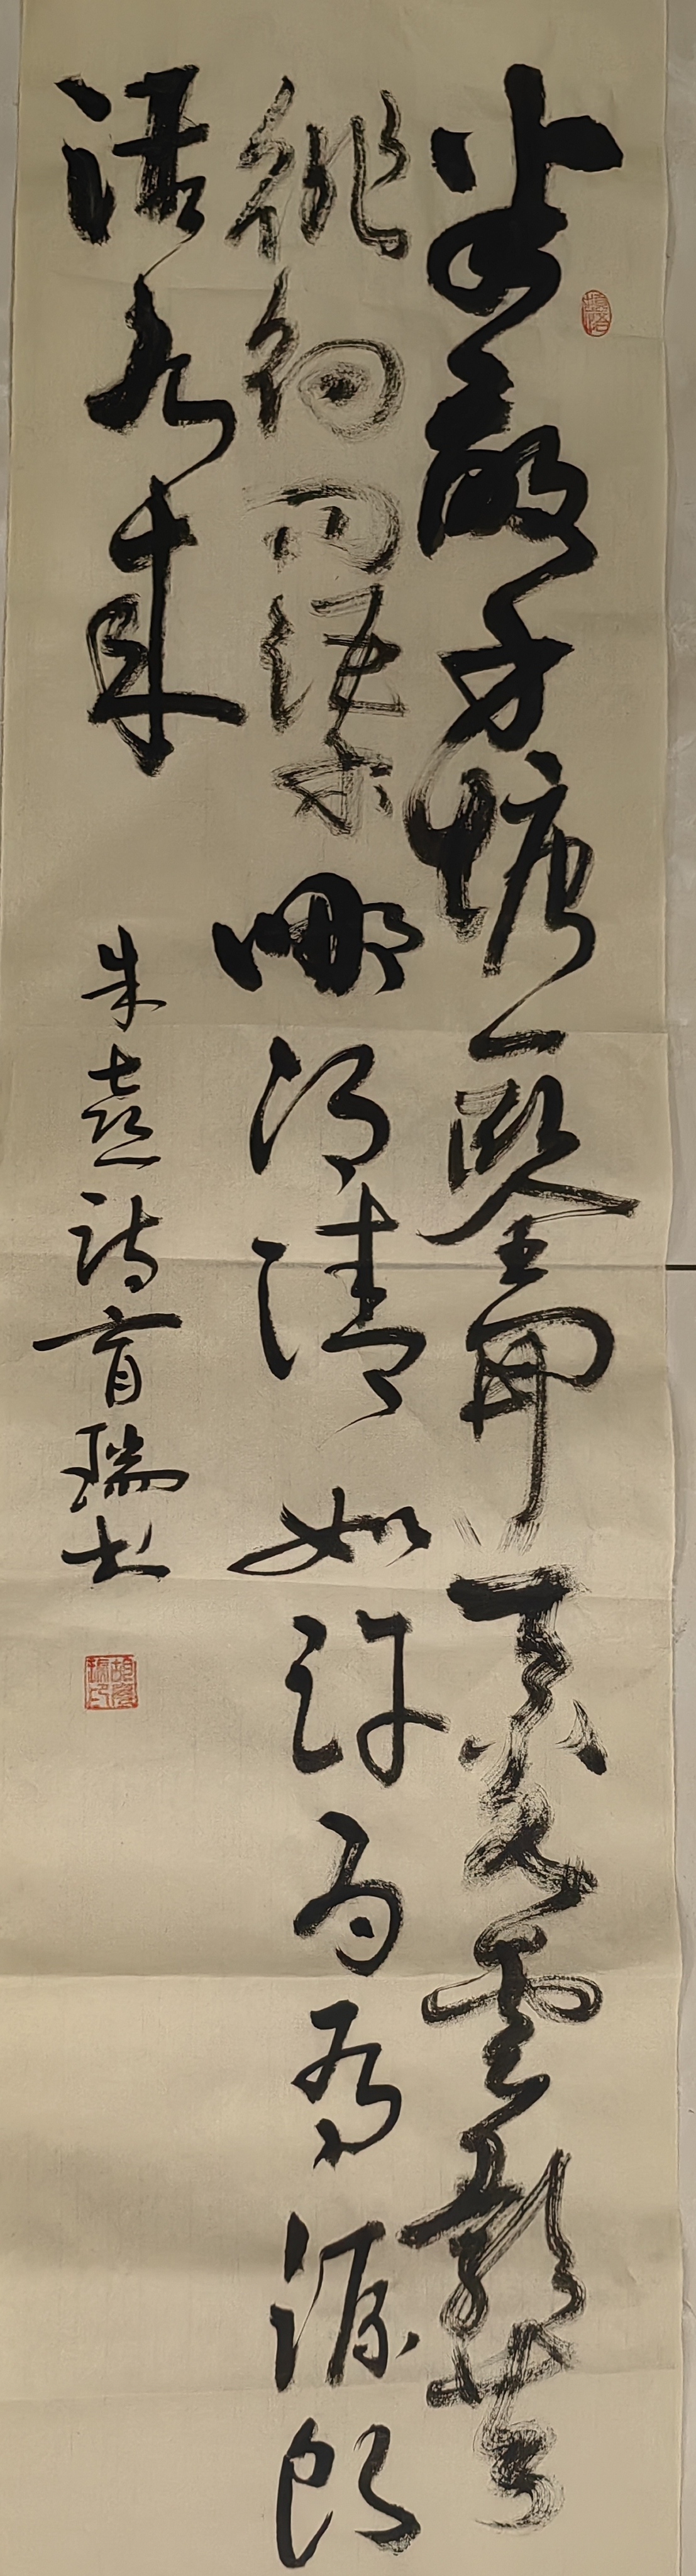 半畝方塘一鑒開天光雲影共
徘徊問渠哪得清如許為有源頭
活水来
朱熹詩育瑞书